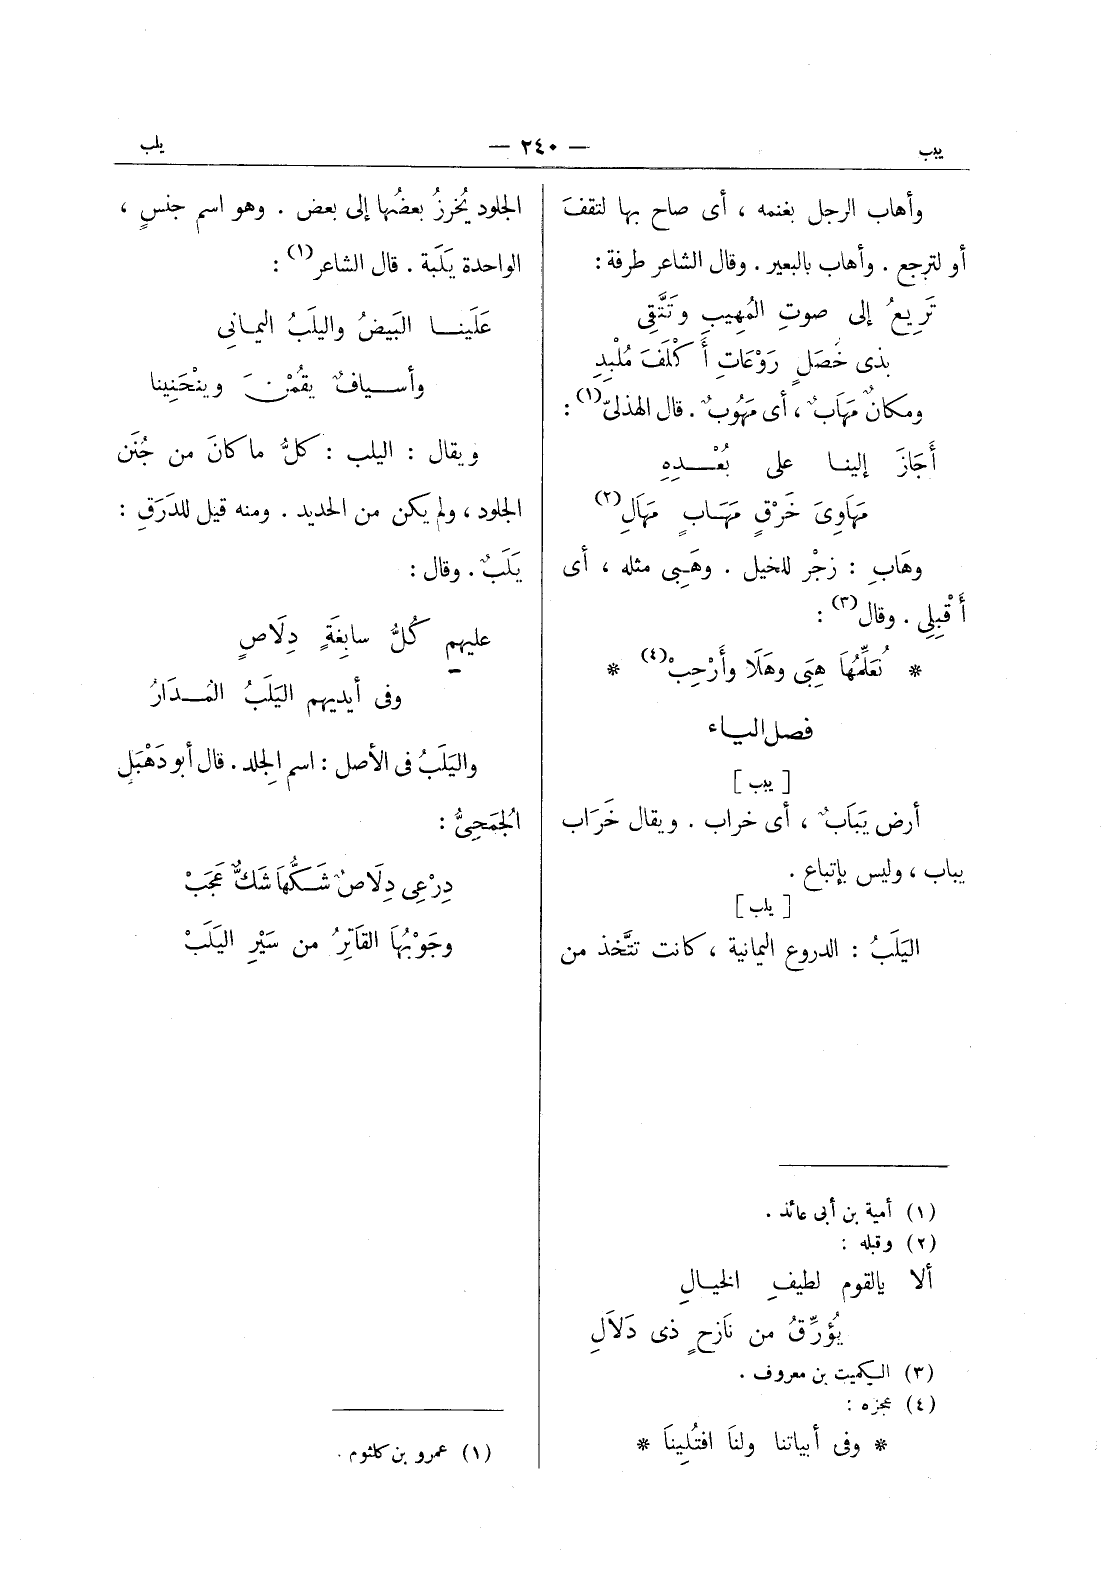 يبب
— ٢٤٠ —
يلب
وأهاب الرجل بغنمه ، أى صاح بها لتقفَ
أو لترجع . وأهاب بالبعير . وقال الشاعر طرفة :
تَرِيعُ إلى صوتِ المُهِيبِ وتَتَّقِى
بذى خُصَلٍ رَوْعَاتِ أَكْلَفَ مُلْبِدِ
ومكانٌ مَهَابٌ ، أى مَهُوبٌ . قال الهذلىّ (١) :
أَجَازَ إلينا على بُعْدِهِ
مَهَاوِىَ خَرْقٍ مَهَابٍ مَهَالِ (٢)
وهَابِ : زجْر للخيل . وهَبِى مثله ، أى
أَقْبِلِى . وقال (٣) :
* نُعَلِّمُهَا هَبِى وهَلَا وأَرْحِبْ (٤) *
فصل الياء
[ يبب ]
أرض يَبَابٌ ، أى خراب . ويقال خَرَاب
يباب ، وليس بإتباع .
[ يلب ]
اليَلَبُ : الدروع اليمانية ، كانت تتَّخذ من
(١) أمية بن أبى عائذ .
(٢) وقبله :
ألا يالقوم لطيفِ الخيالِ
يُؤَرِّقُ من نَازحٍ ذى دَلَالِ
(٣) الكميت بن معروف .
(٤) عجزه :
* وفى أبياتنا ولنا افتُلِينَا *
الجلود يُخرزُ بعضُها إلى بعض . وهو اسم جنسٍ ،
الواحدة يَلَبَة . قال الشاعر (١) :
عَلَينا البَيضُ واليلَبُ اليمانِى
وأسيافٌ يقُمْنَ وينْحَنِينا
ويقال : اليلب : كلُّ ما كانَ من جُنَن
الجلود ، ولم يكن من الحديد . ومنه قيل للدَرَقِ :
يَلَبٌ . وقال :
عليهم كُلُّ سابِغَةٍ دِلَاصٍ
وفى أيديهم اليَلَبُ المُدَارُ
واليَلَبُ فى الأصل : اسم الجِلد . قال أبو دَهْبَلٍ
الجُمَحِىُّ :
دِرْعِى دِلَاصٌ شَكُّهَا شَكٌّ عَجَبْ
وجَوْبُهَا القَاتِرُ من سَيْرِ اليَلَبْ
(١) عمرو بن كلثوم .